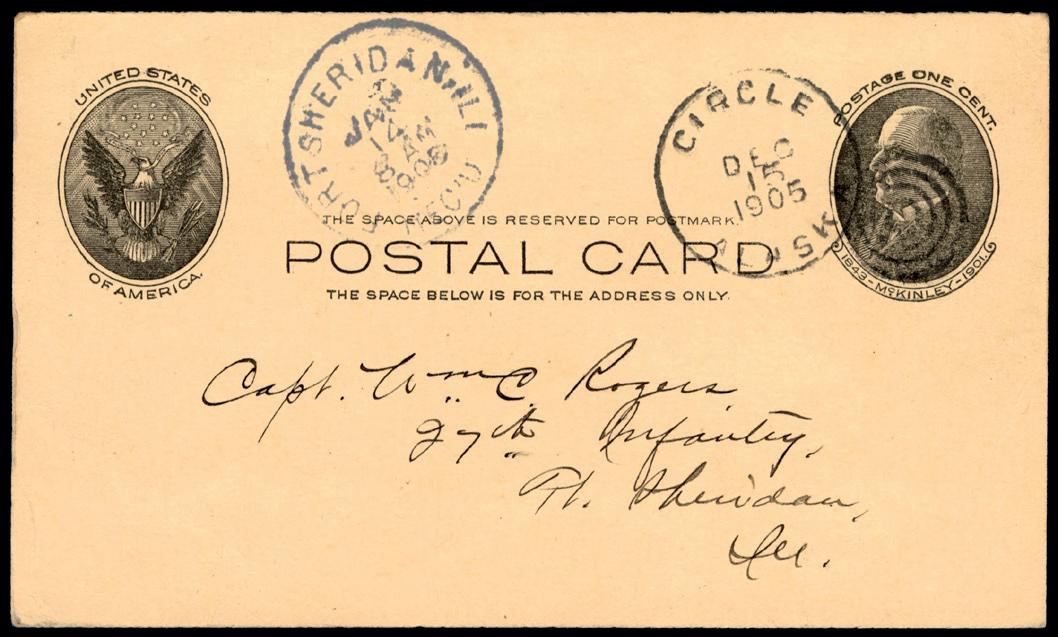 UNITED STATES
OF AMERICA.
FORT SHERIDAN, ILL.
JAN
8 AM
1906
REC'D.
CIRCLE
DEC
15
1905
ALASKA
POSTAGE ONE CENT.
1843-McKINLEY-1901.
THE SPACE ABOVE IS RESERVED FOR POSTMARK.
POSTAL CARD
THE SPACE BELOW IS FOR THE ADDRESS ONLY.
Capt. Wm C. Rogers
27th Infantry,
Ft. Sheridan,
Ill.